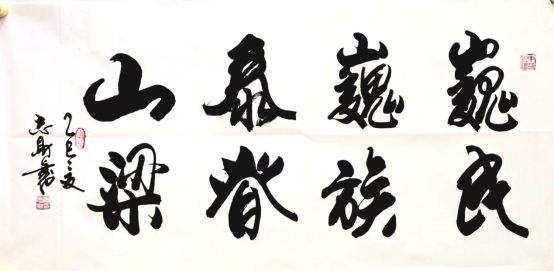 巍巍泰山
民族脊梁
乙巳之夏